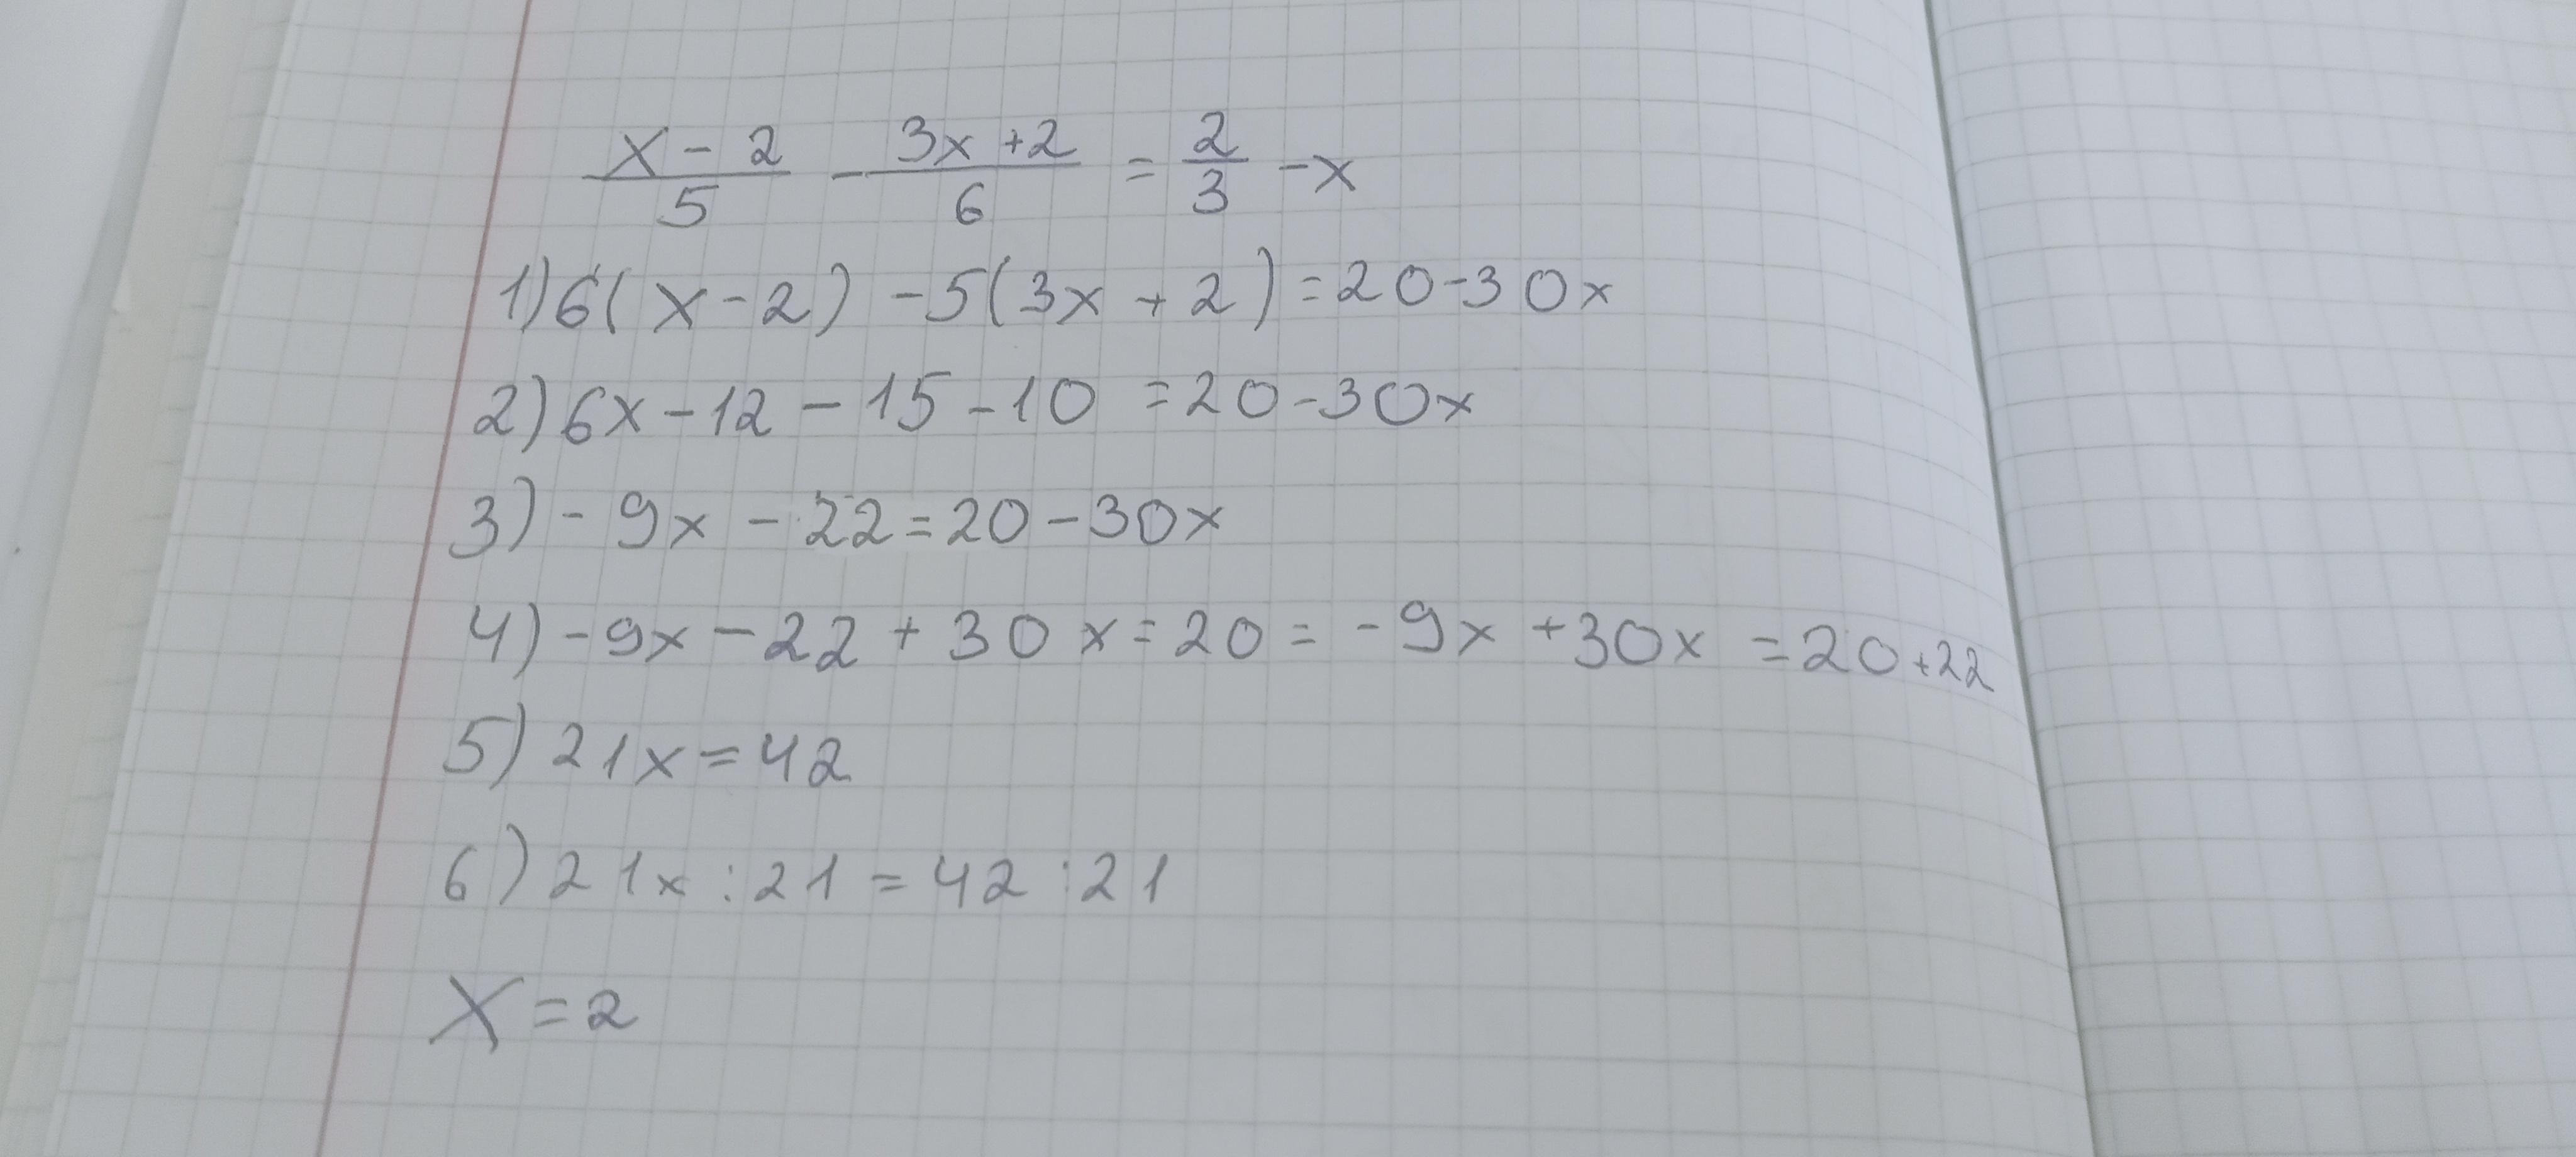 x - 2 / 5 - 3x + 2 / 6 = 2 / 3 - x
1) 6(x - 2) - 5(3x + 2) = 20 - 30x
2) 6x - 12 - 15 - 10 = 20 - 30x
3) - 9x - 22 = 20 - 30x
4) - 9x - 22 + 30x = 20 = - 9x + 30x = 20 + 22
5) 21x = 42
6) 21x : 21 = 42 : 21
X = 2